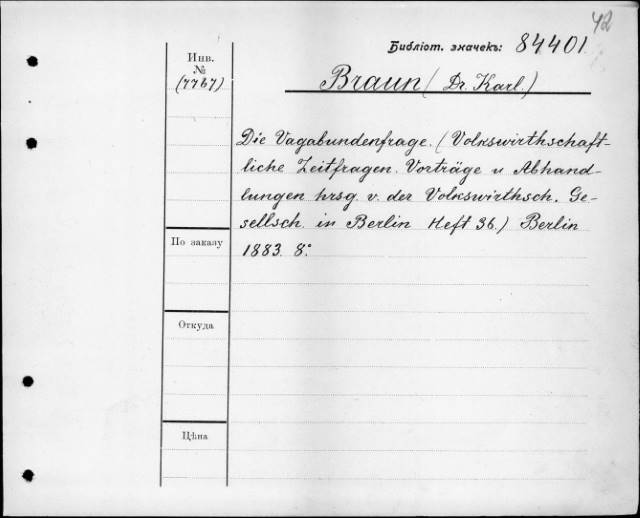 42
Библіот. значекъ: 84401
Инв.
№
(7767)
Braun (Dr. Karl.)
Die Vagabundenfrage. (Volkswirthschaft-
liche Zeitfragen. Vorträge u Abhand-
lungen hrsg. v. der Volkswirthsch. Ge-
sellsch. in Berlin Heft 36.) Berlin
1883. 8°.
По заказу
Откуда
Цѣна